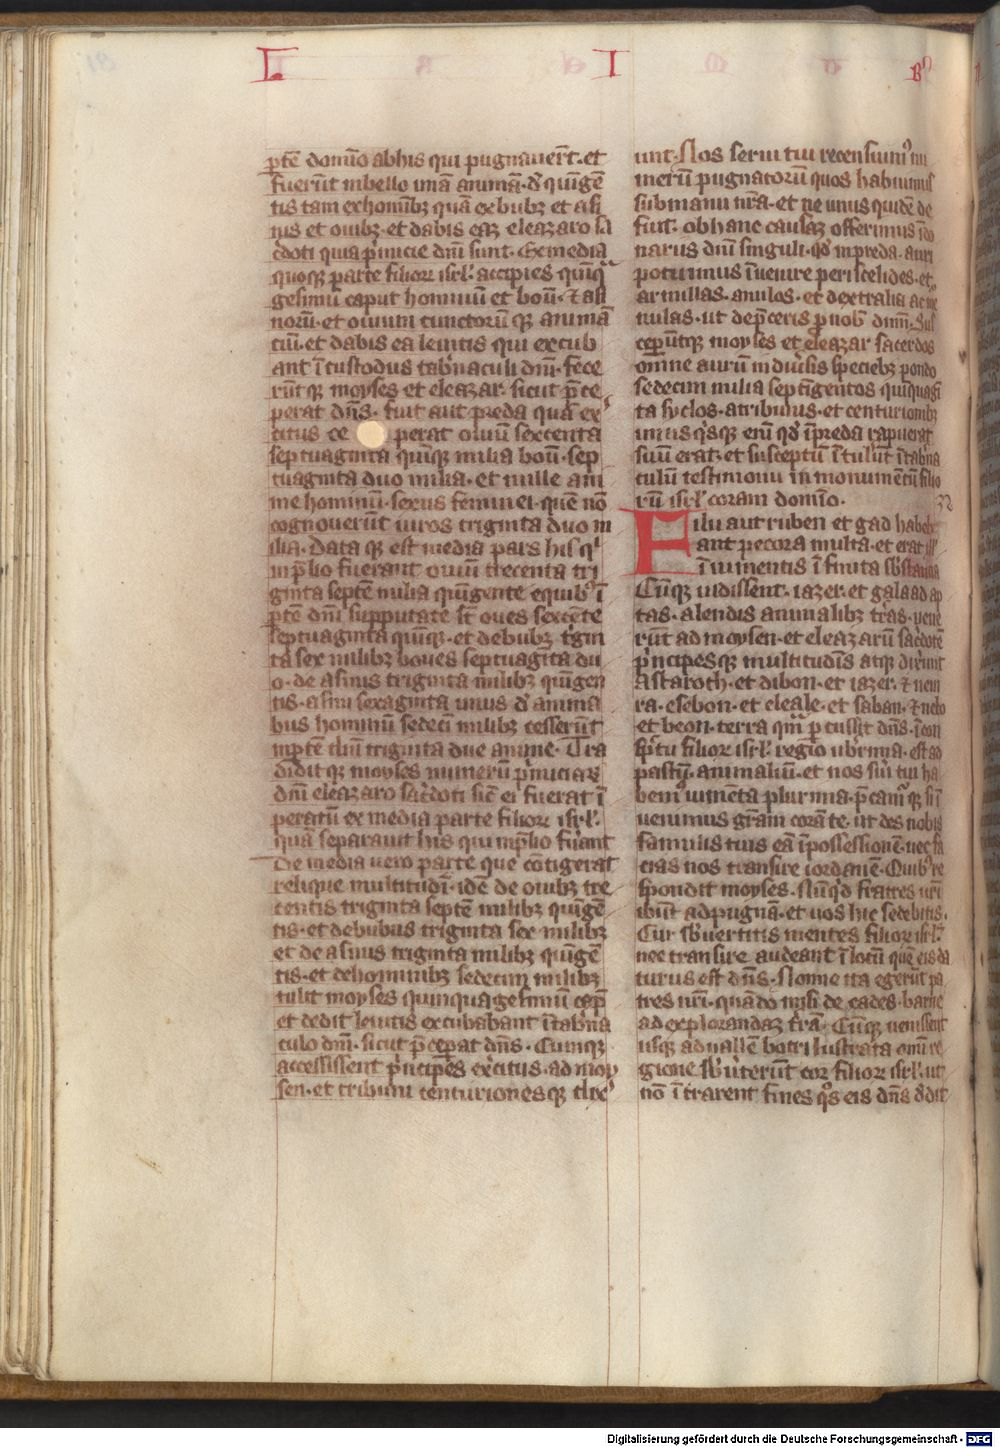 L I Bꝰ
ꝑtē domīo ab his qui pugnauer̄t · et
fuerūt in bello unā animā · d̄ quīgē
tis tam ex homībꝫ quā ex bubꝫ et asi
nis et ouibꝫ · et dabis eaꝫ eleazaro sa
c̄doti quia p̄micie dnī sunt · Ex media
quoqꝫ parte filioꝝ isrl̄ accipies quīq̄
gesimū caput hominū et boū · ⁊ asi
norū · et ouium cunctorū qꝫ animā
tiū · et dabis ea leuitis qui excub
ant ī custodiis tab̄naculi dnī · fece
rūt qꝫ moyses et eleazar · sicut p̄ce
perat dn̄s · fuit aut̄ preda quā ex̄
citus ce perat ouiū sexcenta
septuaginta quīqꝫ milia boū · sep
tuaginta duo milia · et mille ani
me hominū · sexus feminei · quē nō
cognouerūt uiros triginta duo m
ilia · Data qꝫ est media pars his q̄
in p̄lio fuerant ouiū trecenta tri
ginta septē milia quīgente e quibꝰ ī
ꝑtē dnī supputate st̄ oues sexcēte
septuaginta quīqꝫ · et de bubꝫ t̄gin
ta sex milibꝫ boues septuagīta du
o · de asinis triginta milibꝫ quīgen
tis · asini sexaginta unus d̄ anima
bus hominū sedecī milibꝫ cesserūt
in ꝑtē dnī triginta due anime · Tra
didit qꝫ moyses numerū p̄miciaꝝ
dnī eleazaro sac̄doti sic̄ ei fuerat ī
peratū ex media parte filioꝝ isrl̄ ·
quā separauit his qui in p̄lio fūant
De media uero parte que cōtigerat
relique multitudī · id ē de ouibꝫ tre
centis triginta septē milibꝫ quīgē
tis · et de bubus triginta sex milibꝫ
et de asinis triginta milibꝫ quīgē
tis · et de hominibꝫ sedecim milibꝫ
tulit moyses quinquagesimū cap̄
et dedit leuitis excubabant ī tab̄na
culo dnī · sicut p̄ceꝑat dn̄s · Cumqꝫ
accessissent p̄ncipes ex̄citus · ad moy
sen · et tribuni centuriones qꝫ dixe
unt · Nos serui tui recensuimꝰ nu
merū pugnatorū quos habuimus
sub manu nr̄a · et ne unus quidē de
fuit · ob hanc causaꝫ offerimus ī do
nariis dnī singuli · qd̄ in preda auri
potuimus īuenire periscelides · et
armillas · anulos · et dextralia ac mu
nulas · ut dep̄ceris ꝓ nob̄ dnm̄ · Sus
ceperūtqꝫ moyses et eleazar sacerdos
omne aurū in diūsis speciebꝫ pondo
sedecim milia septīgentos quīquagī
ta syclos · a tribunis · et centurionibꝫ
unus q̄sqꝫ enī qd̄ ī preda rapuerat
suū erat · et susceptū ītulūt ī tab̄na
culū testimonii in monumētū filio
rū isrl̄ coram domīo · 32
Filii aut̄ ruben et gad habebāt
ant pecora multa · et erat ill̄
ī iumentis īfinita sb̄stantia
Cūqꝫ uidissent · iazer · et galaad ap
tas · alendis animalibꝫ t̄ras · uene
rūt ad moysen · et eleazarū sac̄dotē
p̄ncipes qꝫ multitudīs atqꝫ dix̄unt
Astaroth · et dibon · et iazer · ⁊ nem
ra · esebon · et eleale · et saban · ⁊ nebo
et beon · terra qm̄ ꝑcussit dn̄s · ī con
sp̄tu filioꝝ isrl̄ · regīo ub̄rima · est ad
pastū · animaliū · et nos s̄ui tui ha
bemꝰ iumēta plurima · p̄camꝰ qꝫ si ī
uenimus gr̄am corā te · ut des nobis
famulis tuis eā ī possessionē · nec fa
cias nos transire iordanē · Quibꝰ re
spondit moyses · Nūqd̄ fratres ur̄i
ibūt ad pugnā · et uos hic sedebitis ·
Cur sb̄uertitis mentes filioꝝ isrl̄ ·
nec transire audeant ī locū quē eis da
turus est dn̄s · Nonne ita egerūt pa
tres ur̄i · quādo misi de cades · barne
ad explorandaꝫ t̄rā · Cūqꝫ uenissent
usqꝫ ad uallē botri lustrata omī re
gione sb̄ūterūt cor filioꝝ isrl̄ · ut
nō ītrarent fines qͦs eis dn̄s d̄dit
Digitalisierung gefördert durch die Deutsche Forschungsgemeinschaft - DFG